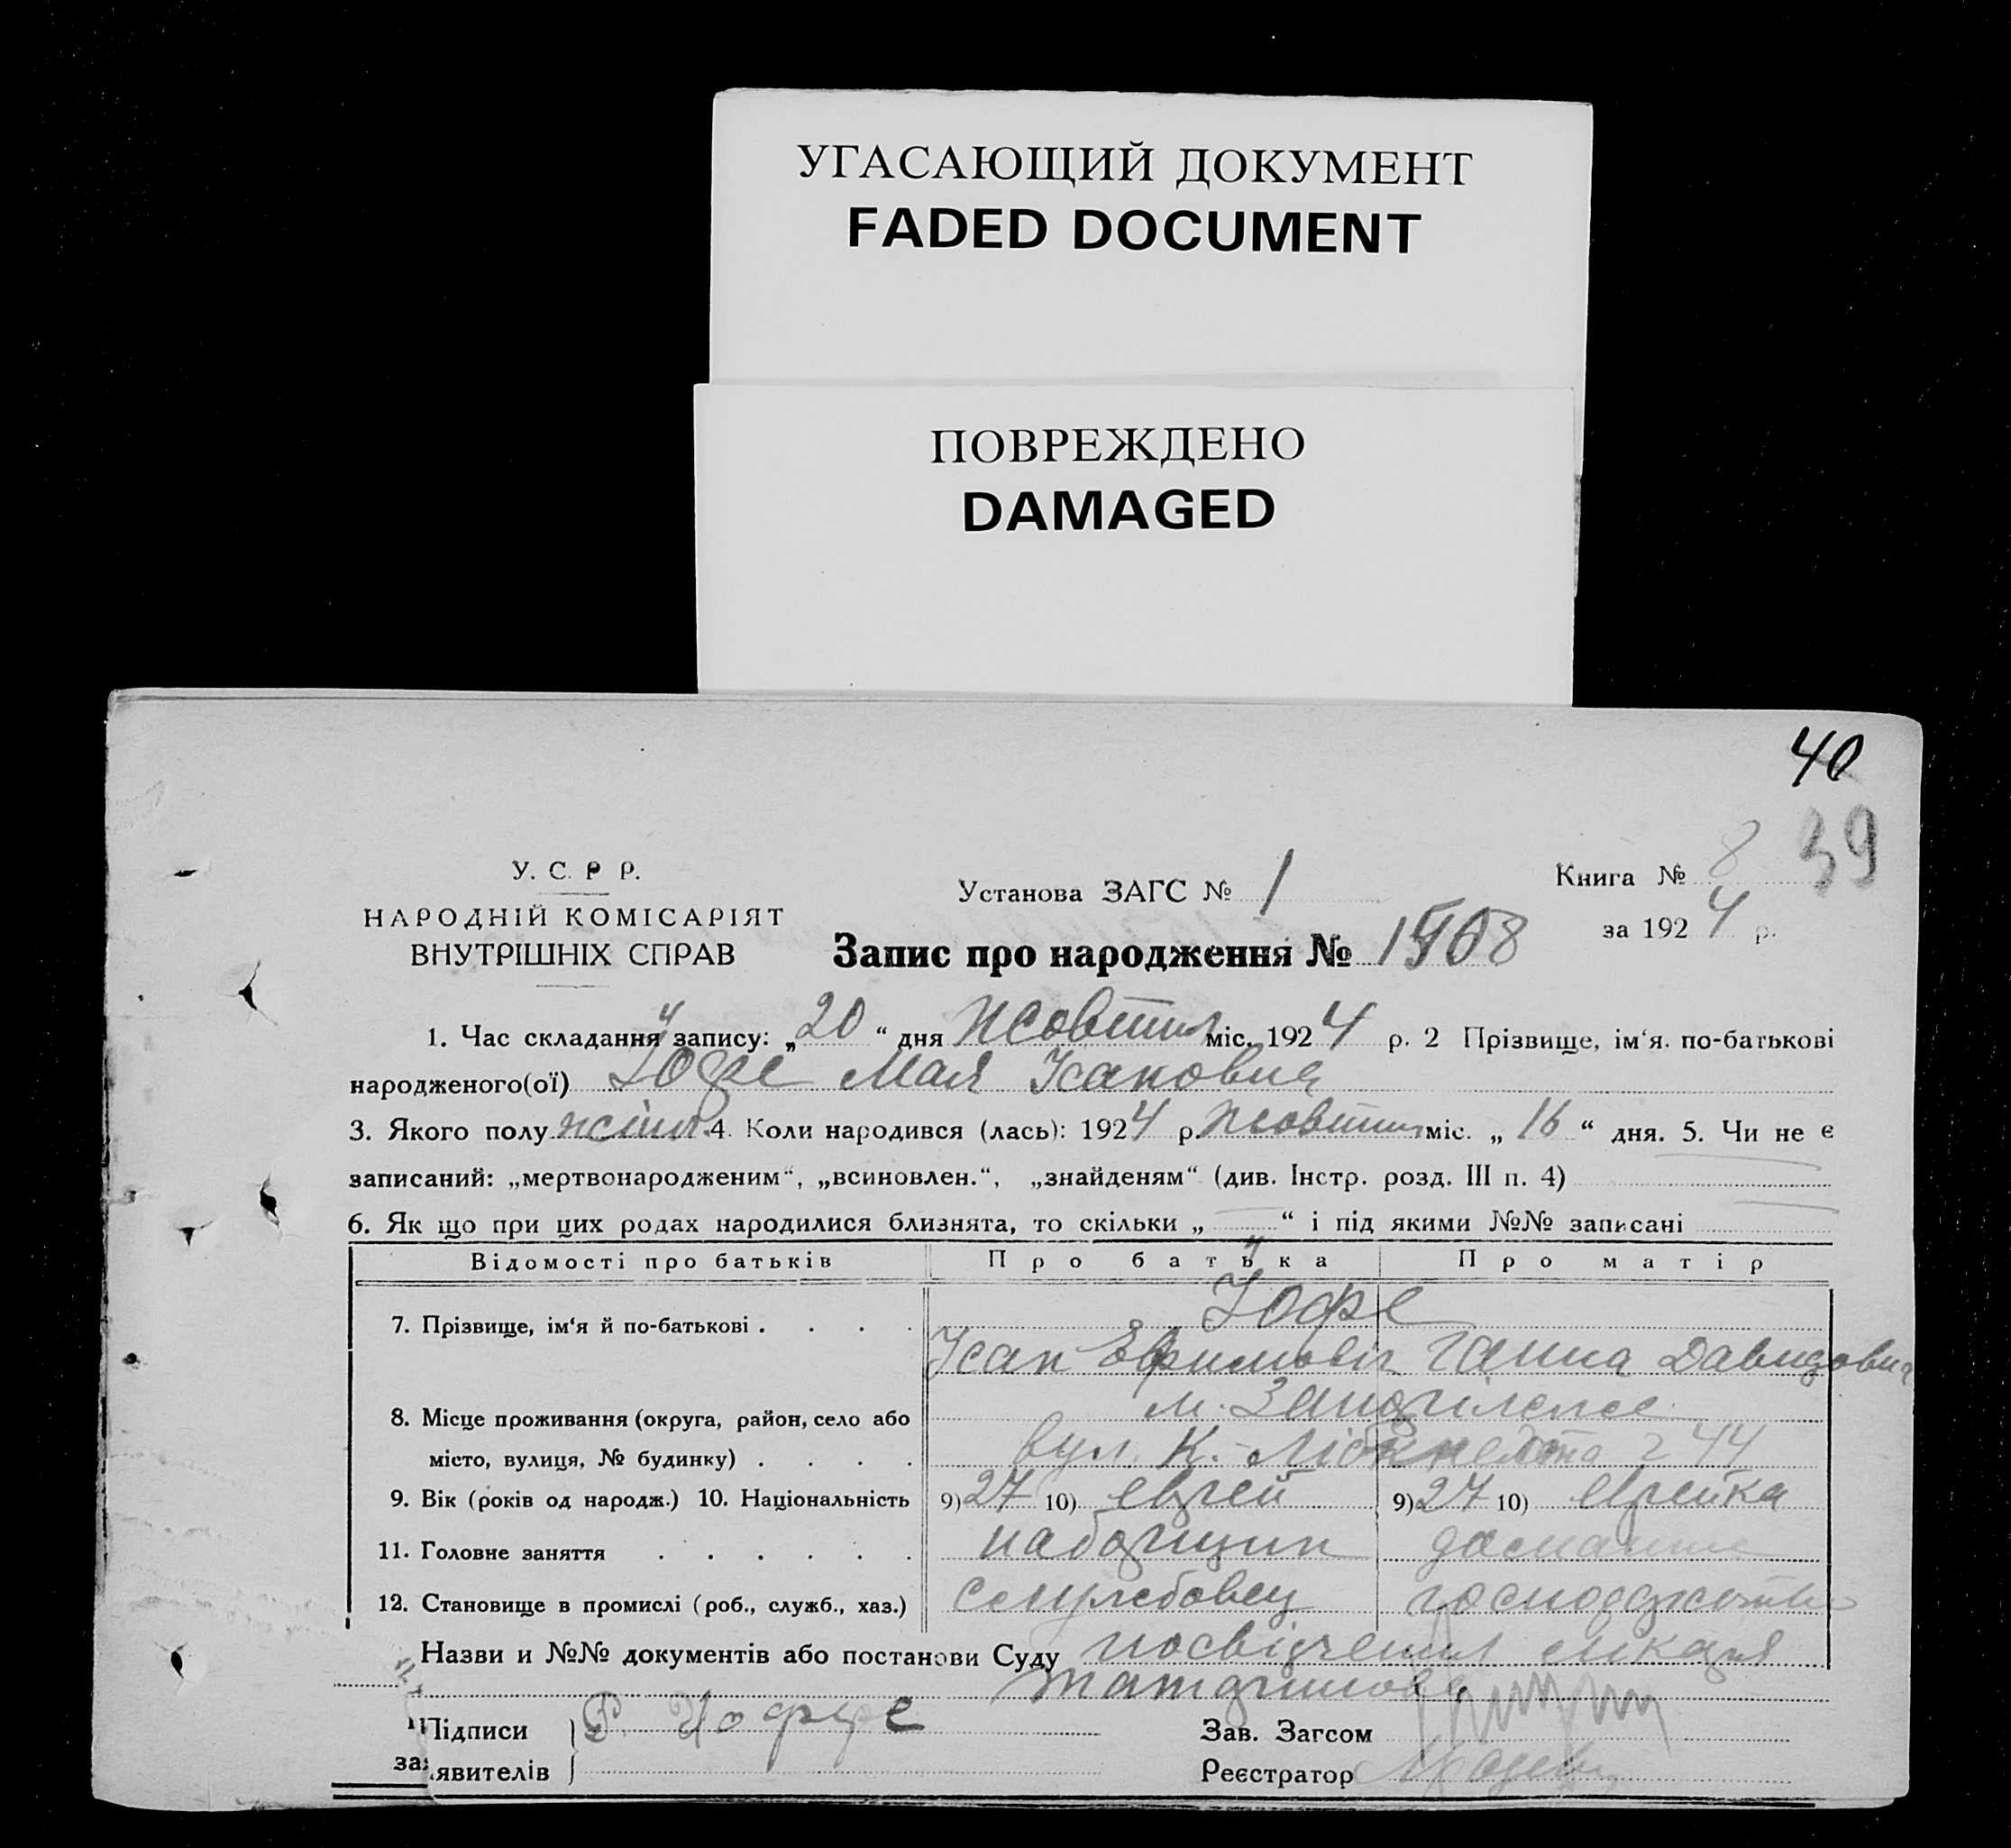 УГАСАЮЩИЙ ДОКУМЕНТ
FADED DOCUMENT
ПОВРЕЖДЕНО
DAMAGED
40
39
У. С. Р Р.
НАРОДНІЙ КОМІСАРІЯТ
ВНУТРІШНІХ СПРАВ
Установа ЗАГС № 1
Книга № 8
за 1924 р.
Запис про народження № 1508
1. Час складання запису: „20“ дня Жовтня міс. 1924 р. 2 Прізвище, ім‘я. по-батькові
народженого(ої) Йофе Мая Ісаковна
3. Якого полу жіноч. 4. Коли народився (лась): 1924 р. Жовтня міс. „16“ дня. 5. Чи не є
записаний: „мертвонародженим“, „всиновлен.“, „знайденям“ (див. Інстр. розд. III п. 4)
6. Як що при цих родах народилися близнята, то скільки „ “ і під якими №№ записані
Відомості про батьків Про батька Про матір
7. Прізвище, ім‘я й по-батькові . . . . Йофе
Ісак Ефимовіч Ганна Давидовна
8. Місце проживання (округа, район, село або м. Запоріжже
місто, вулиця, № будинку) . . . . вул. К. Лібкнехта 44
9. Вік (років од народж.) 10. Національність 9) 27 10) еврей 9) 27 10) еврейка
11. Головне заняття . . . . . . наборщик домашне
12. Становище в промислі (роб., служб., хаз.) господарство
Назви и №№ документів або постанови Суду посвідчення лікаря
Підписи Йоффе
заявителів
Зав. Загсом
Реєстратор